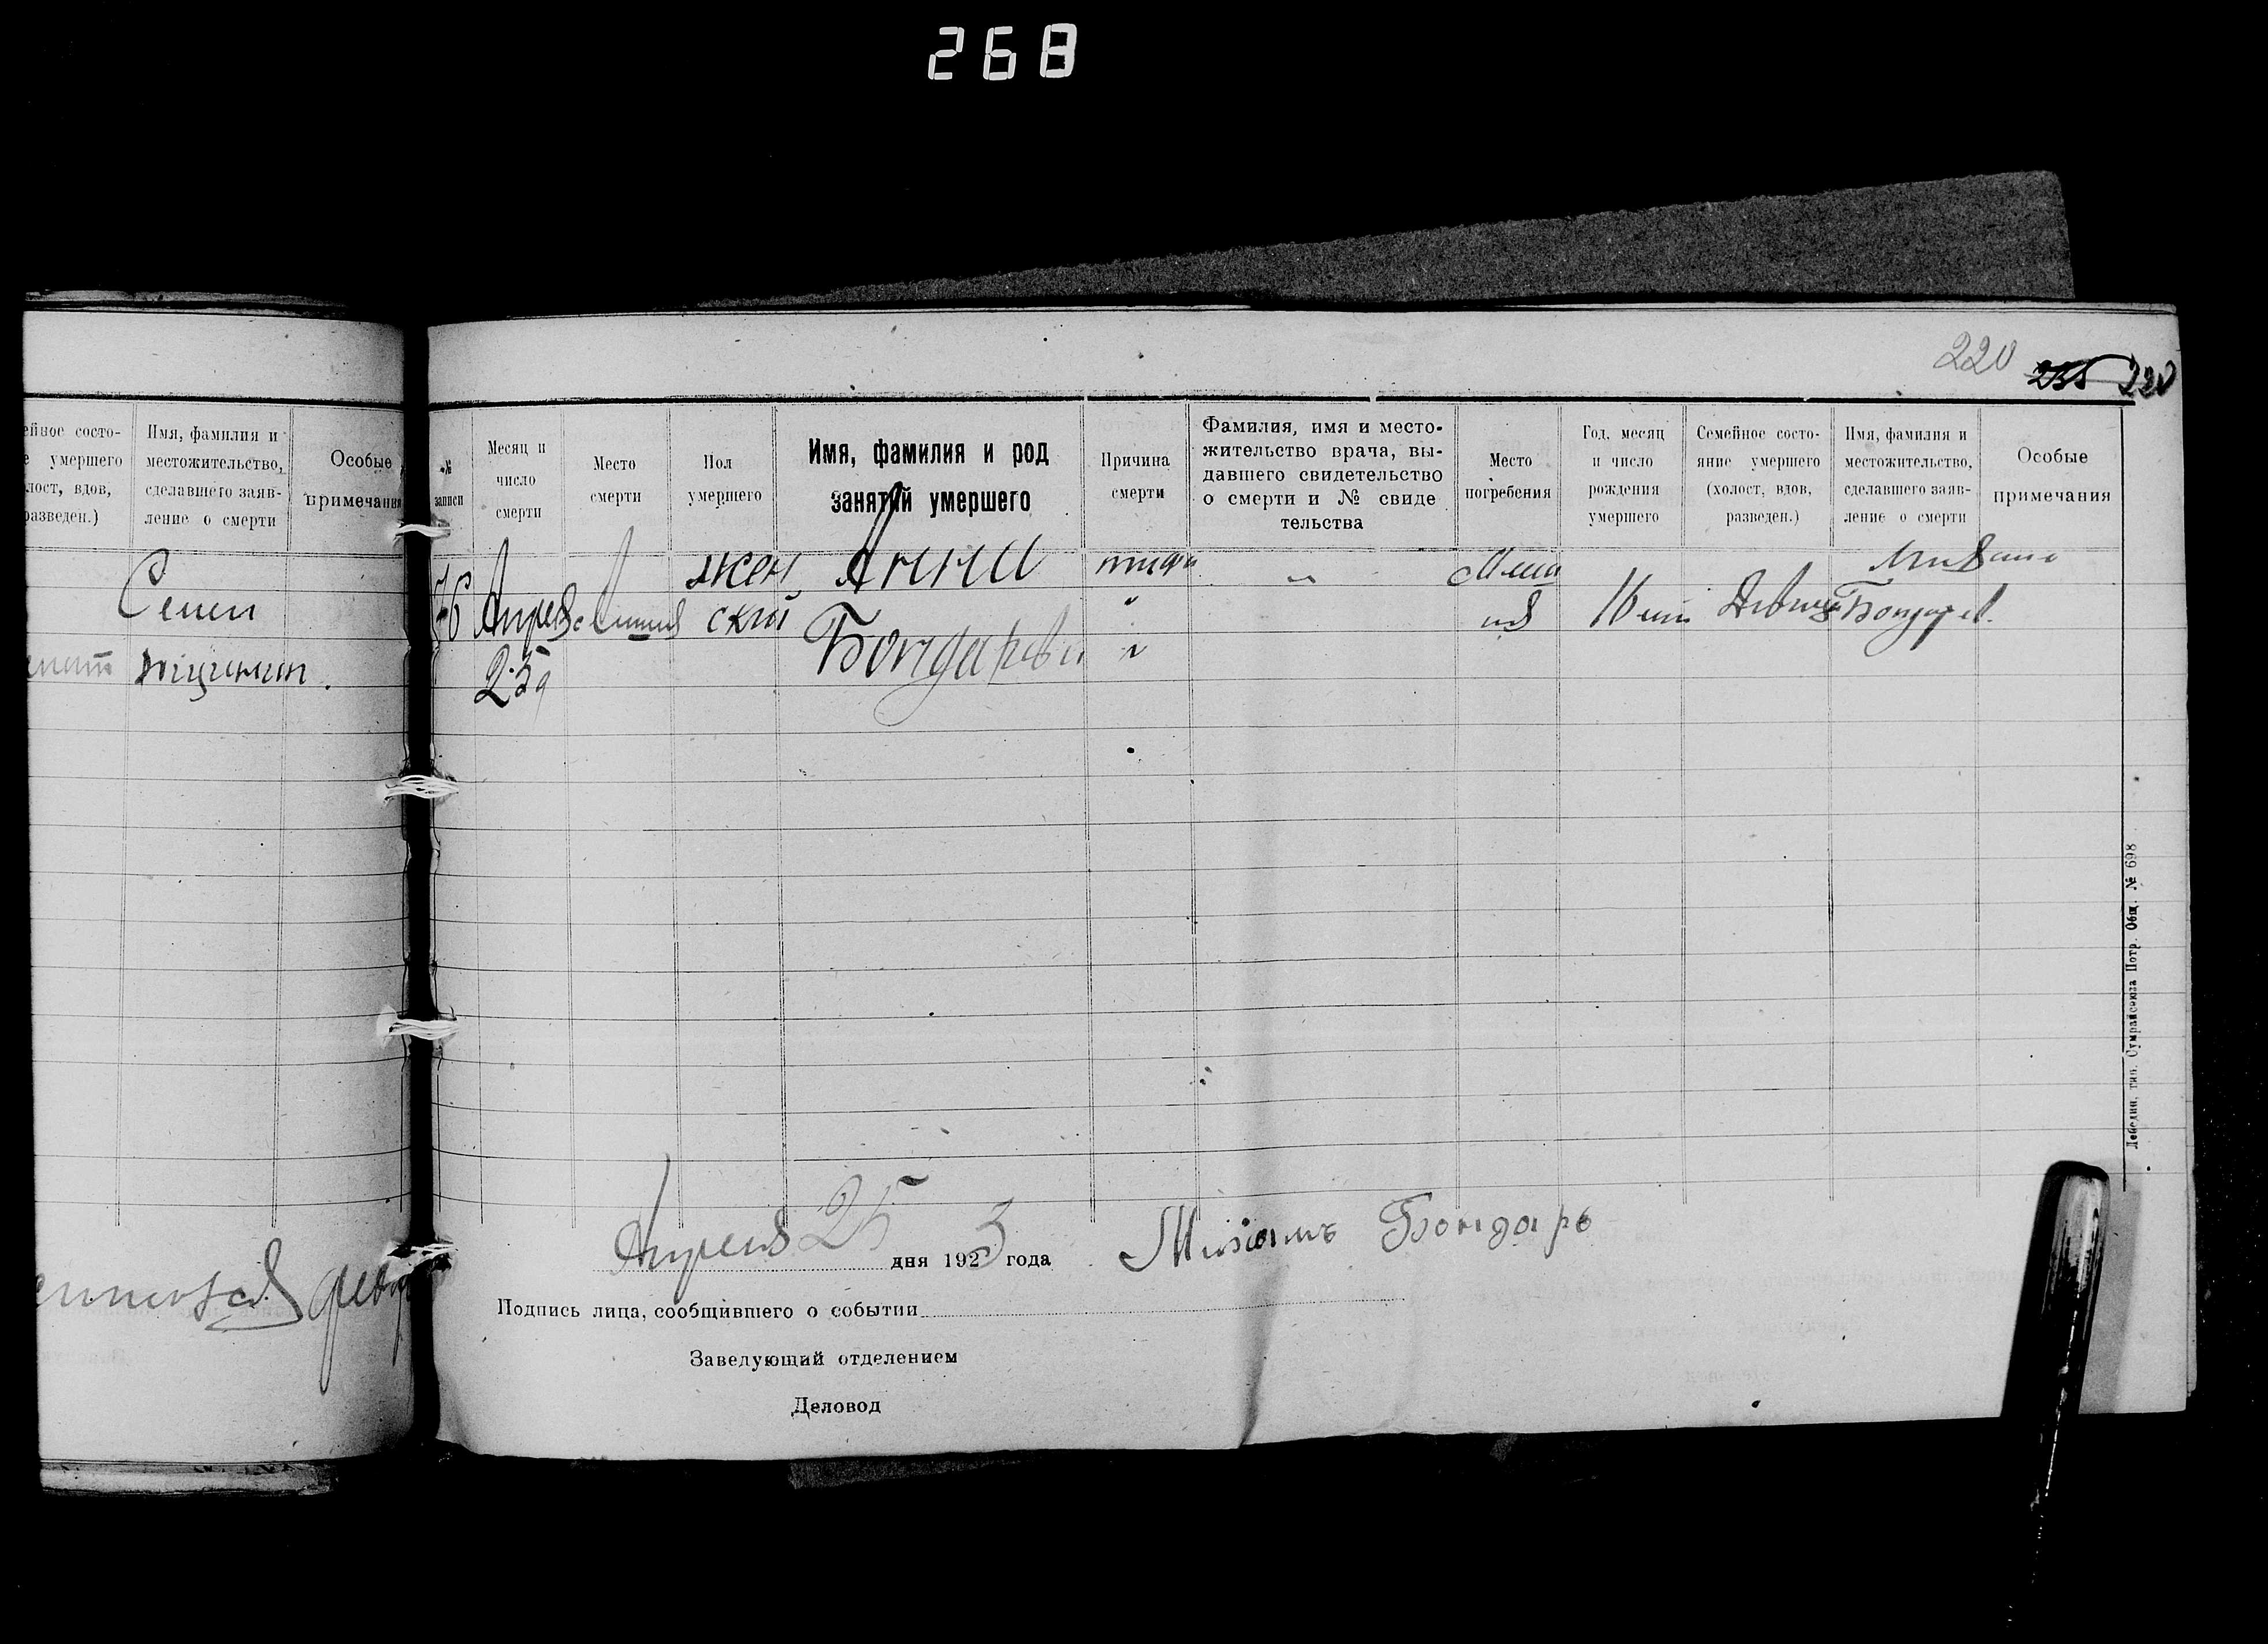 268
220 255 220
ейное состо-
е умершего
лост, вдов,
разведен.)
Имя, фамилия и
местожительство,
сделавшего заяв-
ление о смерти
Особые
примечания
Семен
№
записи
Месяц и
число
смерти
Место
смерти
Пол
умершего
Имя, фамилия и род
занятий умершего
Причина
смерти
Фамилия, имя и место-
жительство врача, вы-
давшего свидетельство
о смерти и № свиде
тельства
Место
погребения
Год, месяц
и число
рождения
умершего
Семейное состо-
яние умершего
(холост, вдов,
разведен.)
Имя, фамилия и
местожительство,
сделавшего заяв-
ление о смерти
Особые
примечания
76
Апрель
25
жен
ский
Анна
Бондарева
тиф
16 лет
Девица
Михаил
Бондарев.
Апреля 25 дня 1923 года Михаилъ Бондарь
Подпись лица, сообщившего о событии
Заведующий отделением
Деловод
Лебедин. тип. Сумрайсоюза Потр. Общ. № 698